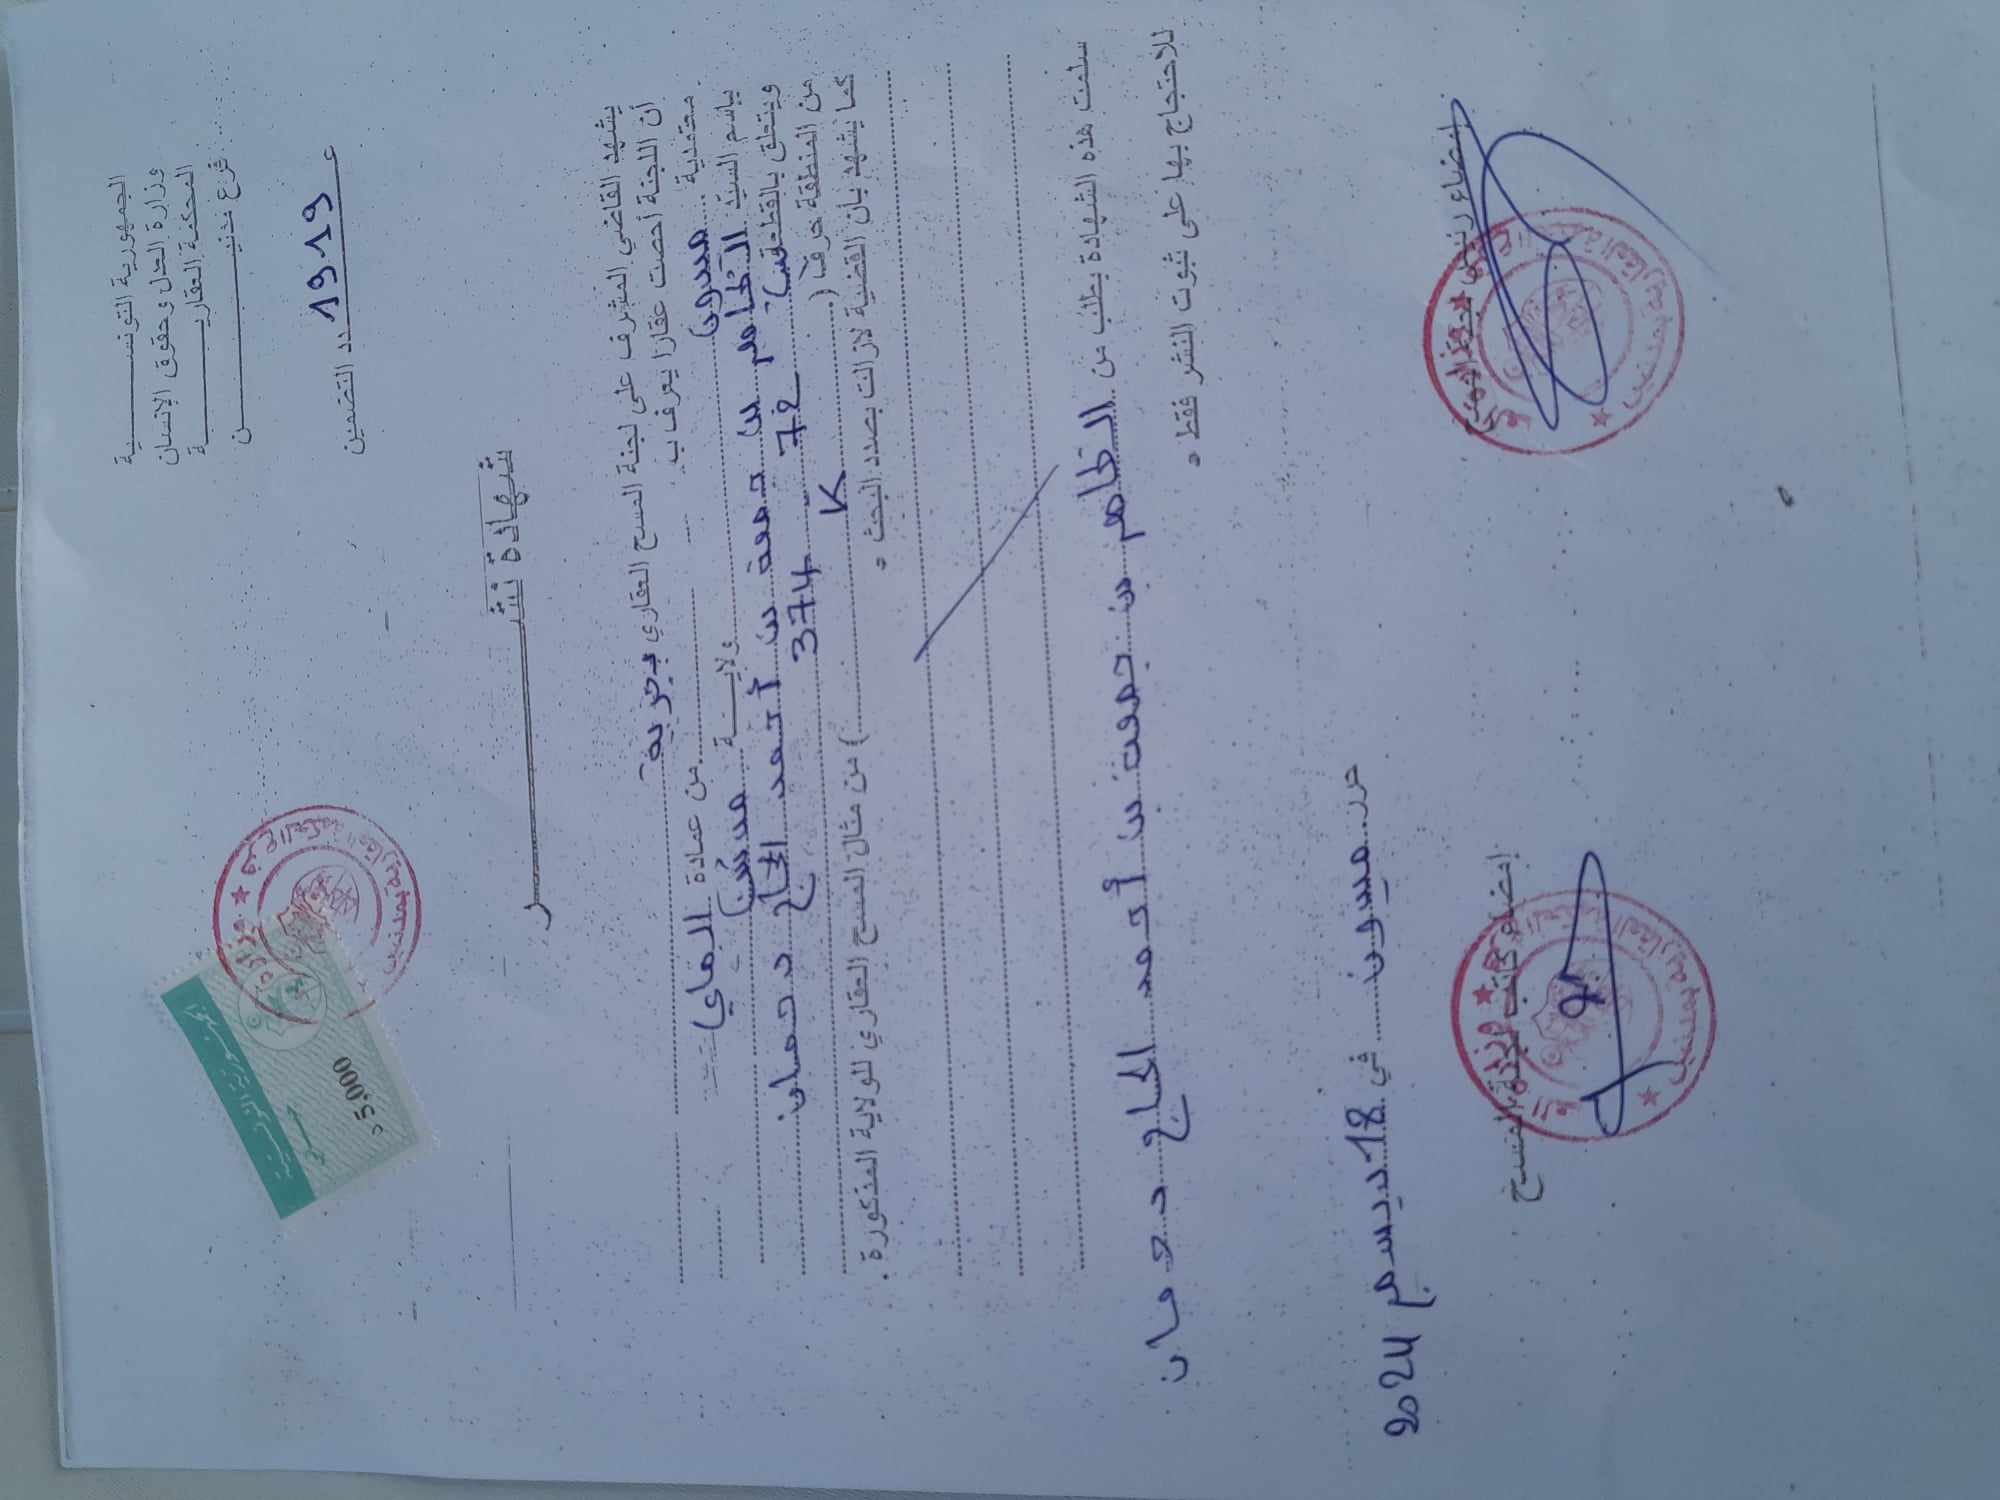 الجمهورية التونسية
وزارة العدل وحقوق الإنسان
المحكمة العقارية
فرع مدنين
عدد التضمين 1919
الجمهورية التونسية
5,000
شهادة نشر
يشهد القاضي المشرف على لجنة المسح العقاري بجربة
أن اللجنة أحصت عقارا يعرف ب
معتمدية ميدون من عمادة
ولاية مدنين
بإسم السيد الطاهر بن جمعة بن أحمد الحاج دحمان
ويتعلق بالقطعتين 72 - 374
من المنطقة حرف ( K ) من مثال المسح العقاري للولاية المذكورة .
كما يشهد بأن القضية لازالت بصدد البحث .
سلمت هذه الشهادة بطلب من الطاهر بن جمعة بن أحمد الحاج دحمان
للاحتجاج بها على ثبوت النشر فقط .
حرر ميدون في 18 ديسمبر 2024
إمضاء كاتب لجنة المسح